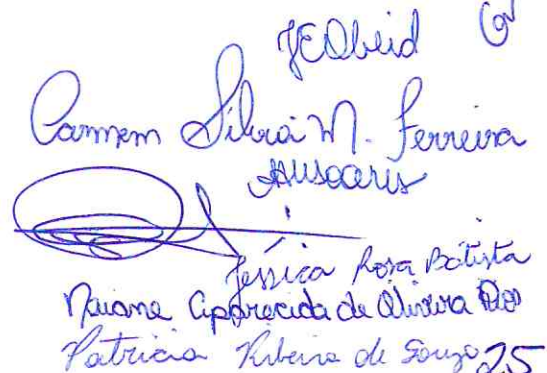 JEObeid
Carmem Silvia M. Ferreira
Jéssica Rosa Batista
Naiane Aparecida de Oliveira Rios
Patricia Ribeiro de Souza 25